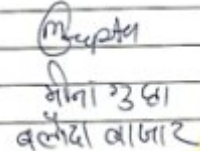 Mgupta
मीना गुप्ता
बलौदा बाजार